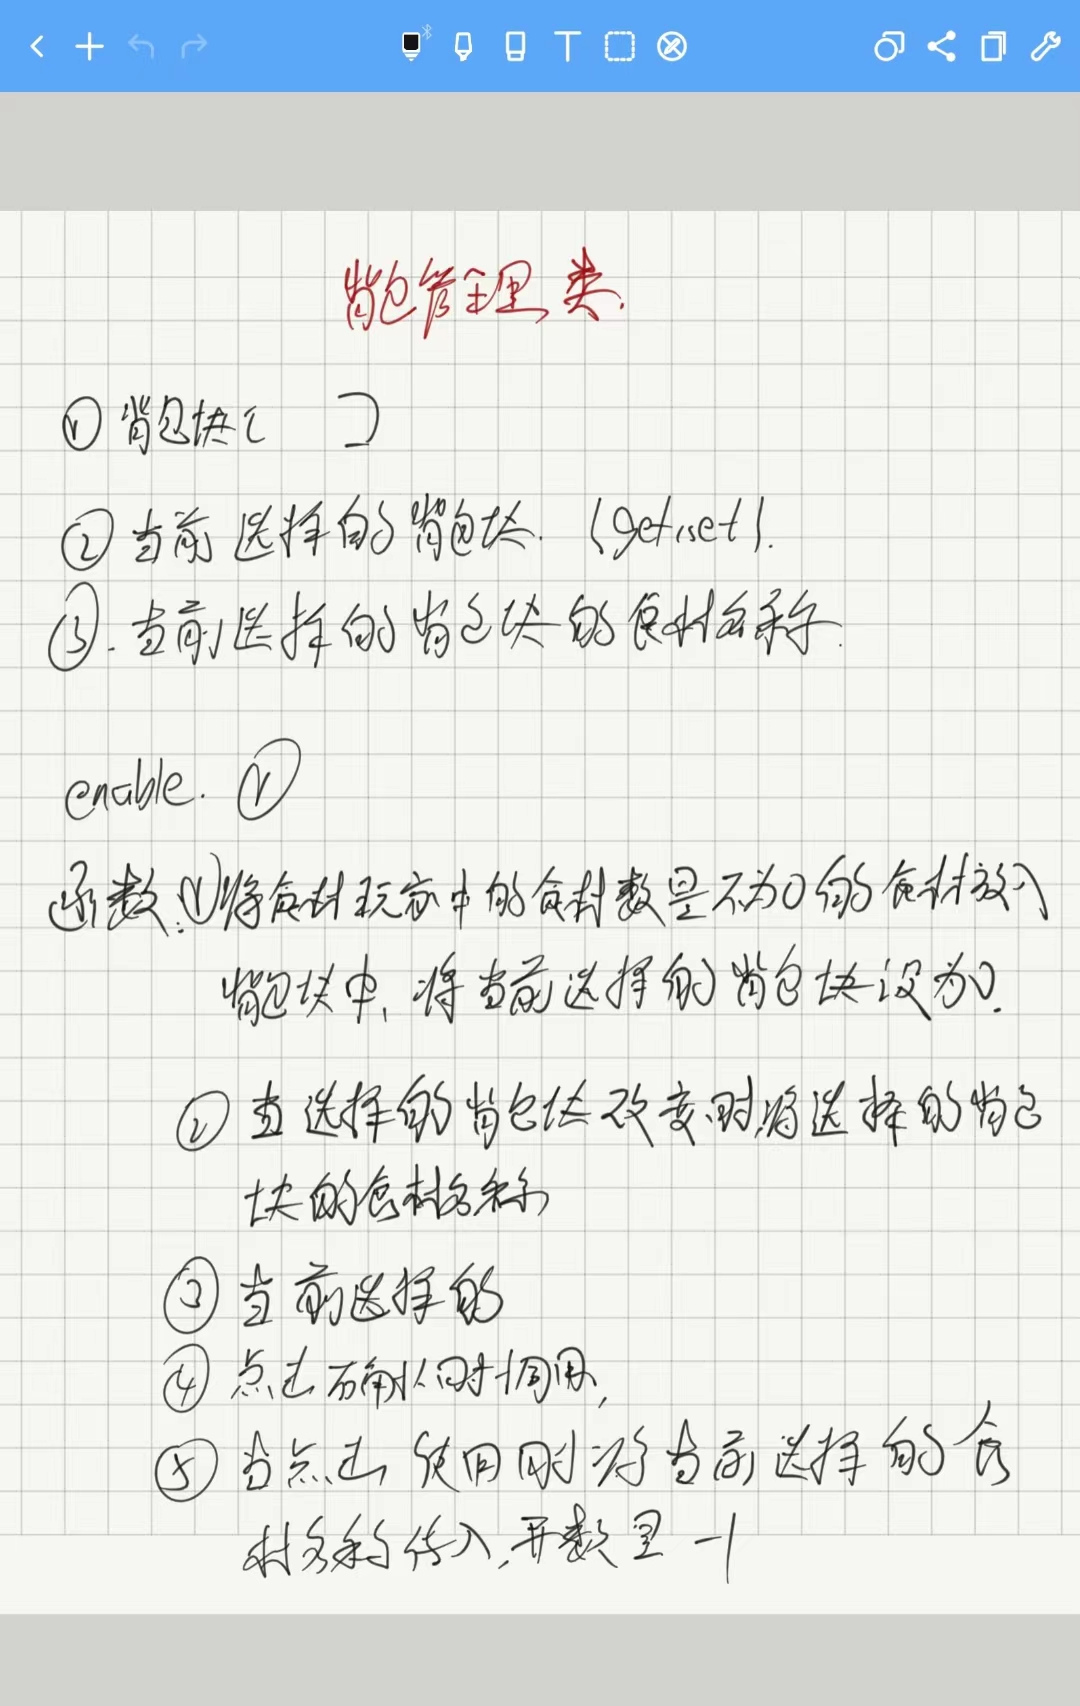 背包管理类.
① 背包块[ ]
② 当前选择的背包块. (get,set).
③. 当前选择的背包块的食材名称.
enable. ①
函数:①将食材玩家中的食材数量不为0的食材放入
背包块中,将当前选择的背包块设为0.
② 当选择的背包块改变时,将选择的背包
块的食材名称
③ 当前选择的
④ 点击确认时调用,
⑤ 当点击使用时将当前选择的食
材名称传入,并数量-1